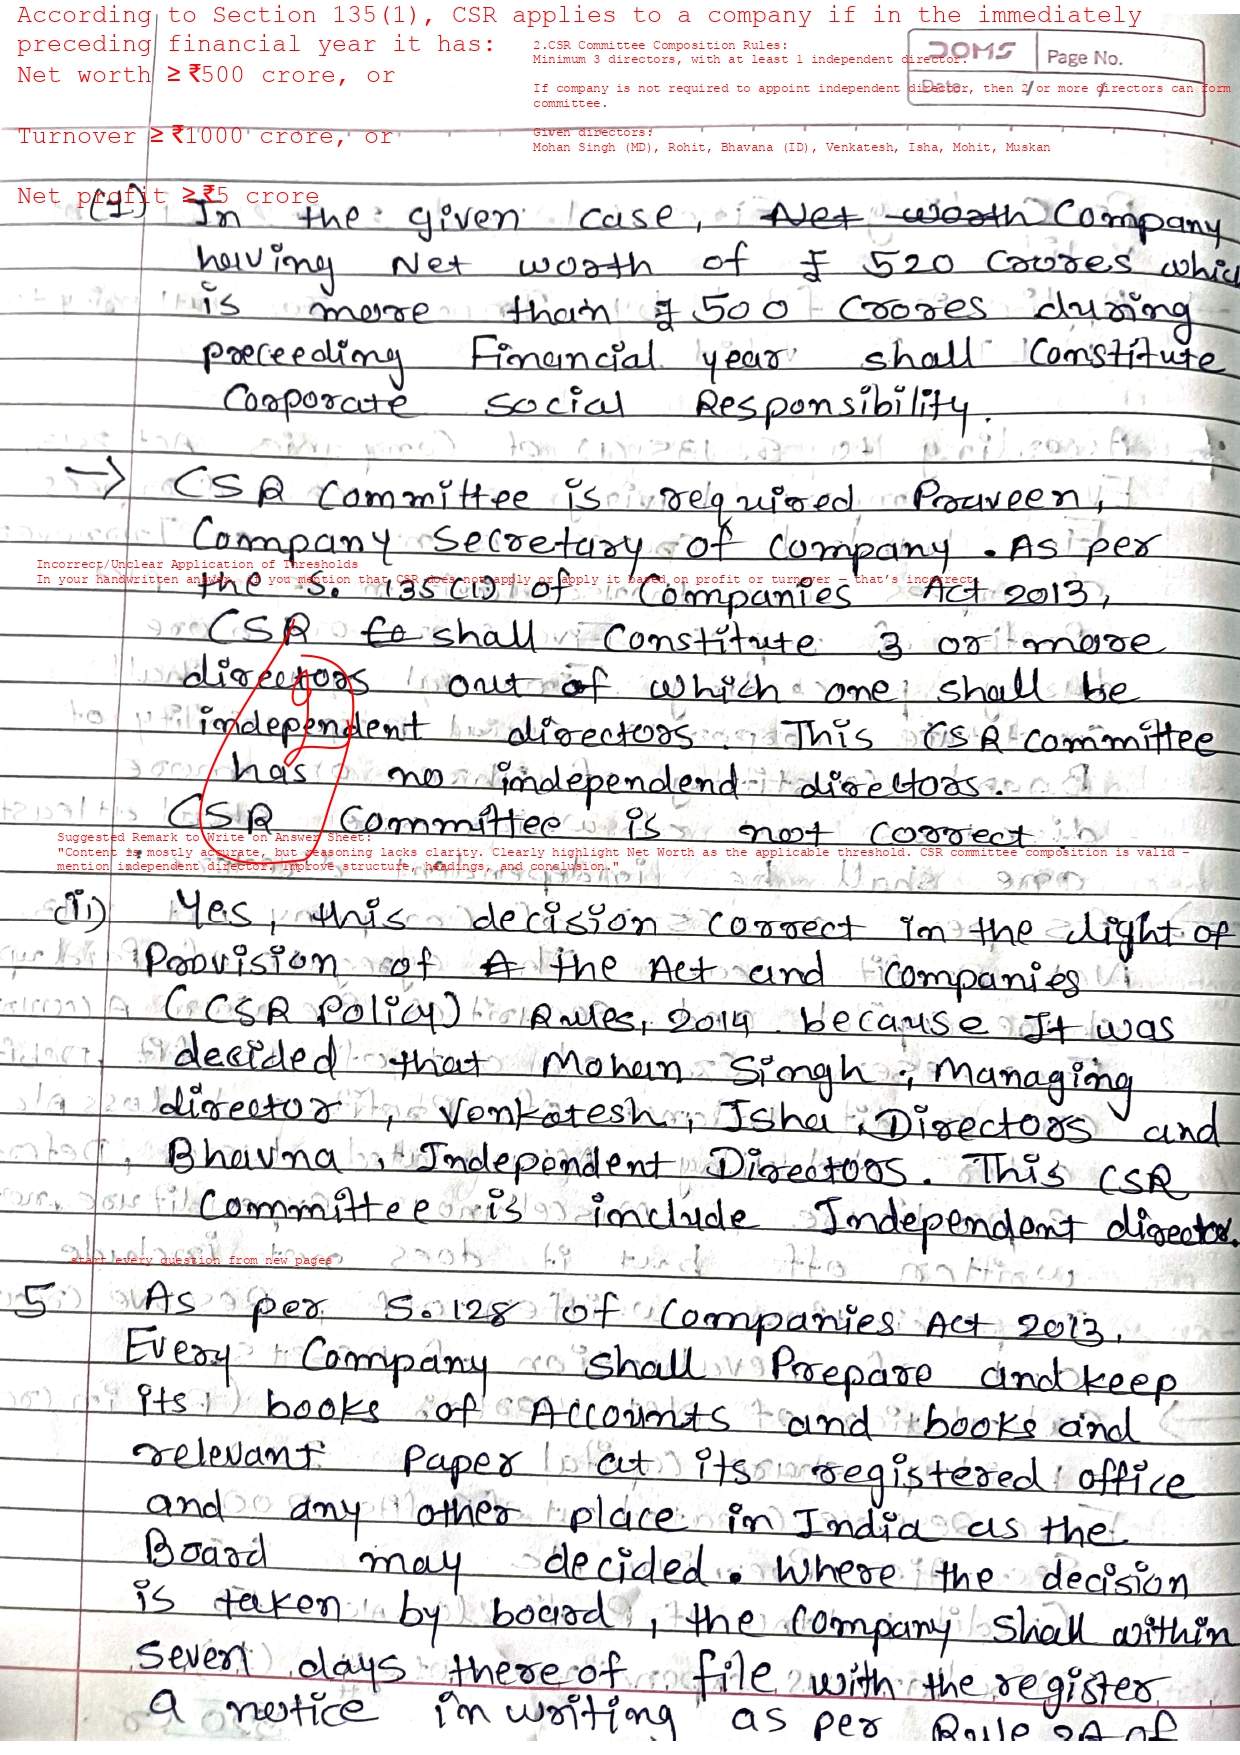 According to Section 135(1), CSR applies to a company if in the immediately
preceding financial year it has:
Net worth ≥ ₹500 crore, or
Turnover ≥ ₹1000 crore, or
Net profit ≥ ₹5 crore
2.CSR Committee Composition Rules:
Minimum 3 directors, with at least 1 independent director.
If company is not required to appoint independent director, then 2 or more directors can form
committee.
Given directors:
Mohan Singh (MD), Rohit, Bhavana (ID), Venkatesh, Isha, Mohit, Muskan
DOMS Page No.
Date: / /
(I) In the given case, Net worth Company
having Net worth of ₹ 520 Crores which
is more than ₹ 500 Crores during
preceeding Financial year shall Constitute
Corporate social Responsibility.
→ CSR Committee is required Praveen,
Company Secretary of company. As per
Incorrect/Unclear Application of Thresholds
In your handwritten answer, if you mention that CSR does not apply or apply it based on profit or turnover – that's incorrect.
the S. 135(1) of Companies Act 2013,
CSR co shall Constitute 3 or more
directors out of which one shall be
independent directors. This CSR committee
has no independend directors.
CSR Committee is not correct
Suggested Remark to Write on Answer Sheet:
"Content is mostly accurate, but reasoning lacks clarity. Clearly highlight Net Worth as the applicable threshold. CSR committee composition is valid –
mention independent director, improve structure, headings, and conclusion."
(ii) Yes, this decision correct in the light of
Provision of A the Act and Companies
(CSR Policy) Rules, 2014 because It was
decided that Mohan Singh, Managing
director, Venkatesh, Isha, Directors and
Bhavna, Independent Directors. This CSR
Committee is include Independent director.
start every question from new pages
5 As per S. 128 of Companies Act 2013,
Every Company shall Prepare and keep
its books of Accounts and books and
relevant paper at its registered office
and any other place in India as the
Board may decided. Where the decision
is taken by board, the company shall within
seven days thereof file with the register
a notice in writing as per Rule 2A of